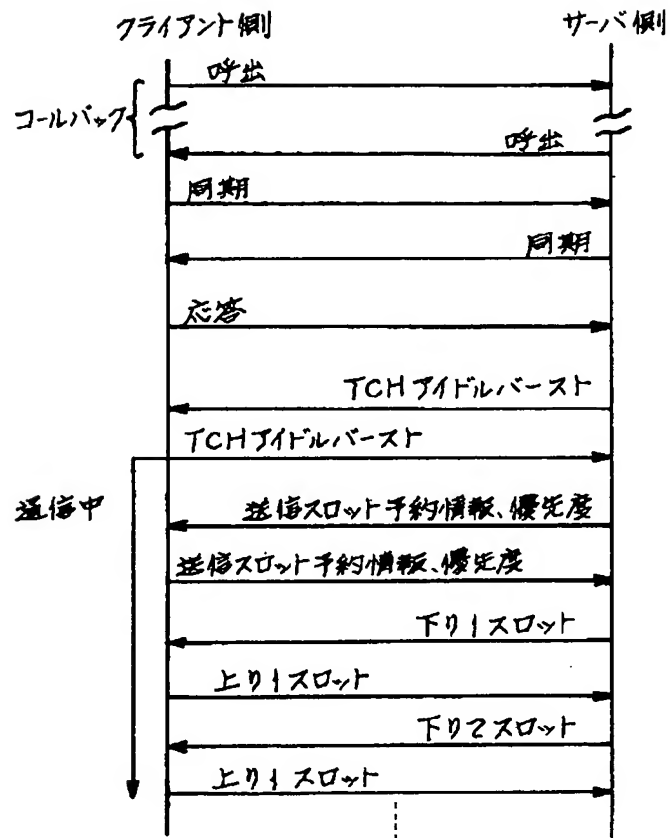 クライアント側
サーバ側
呼出
コールバック
呼出
同期
同期
応答
TCHアイドルバースト
TCHアイドルバースト
通信中
送信スロット予約情報、優先度
送信スロット予約情報、優先度
下り1スロット
上り1スロット
下り2スロット
上り1スロット